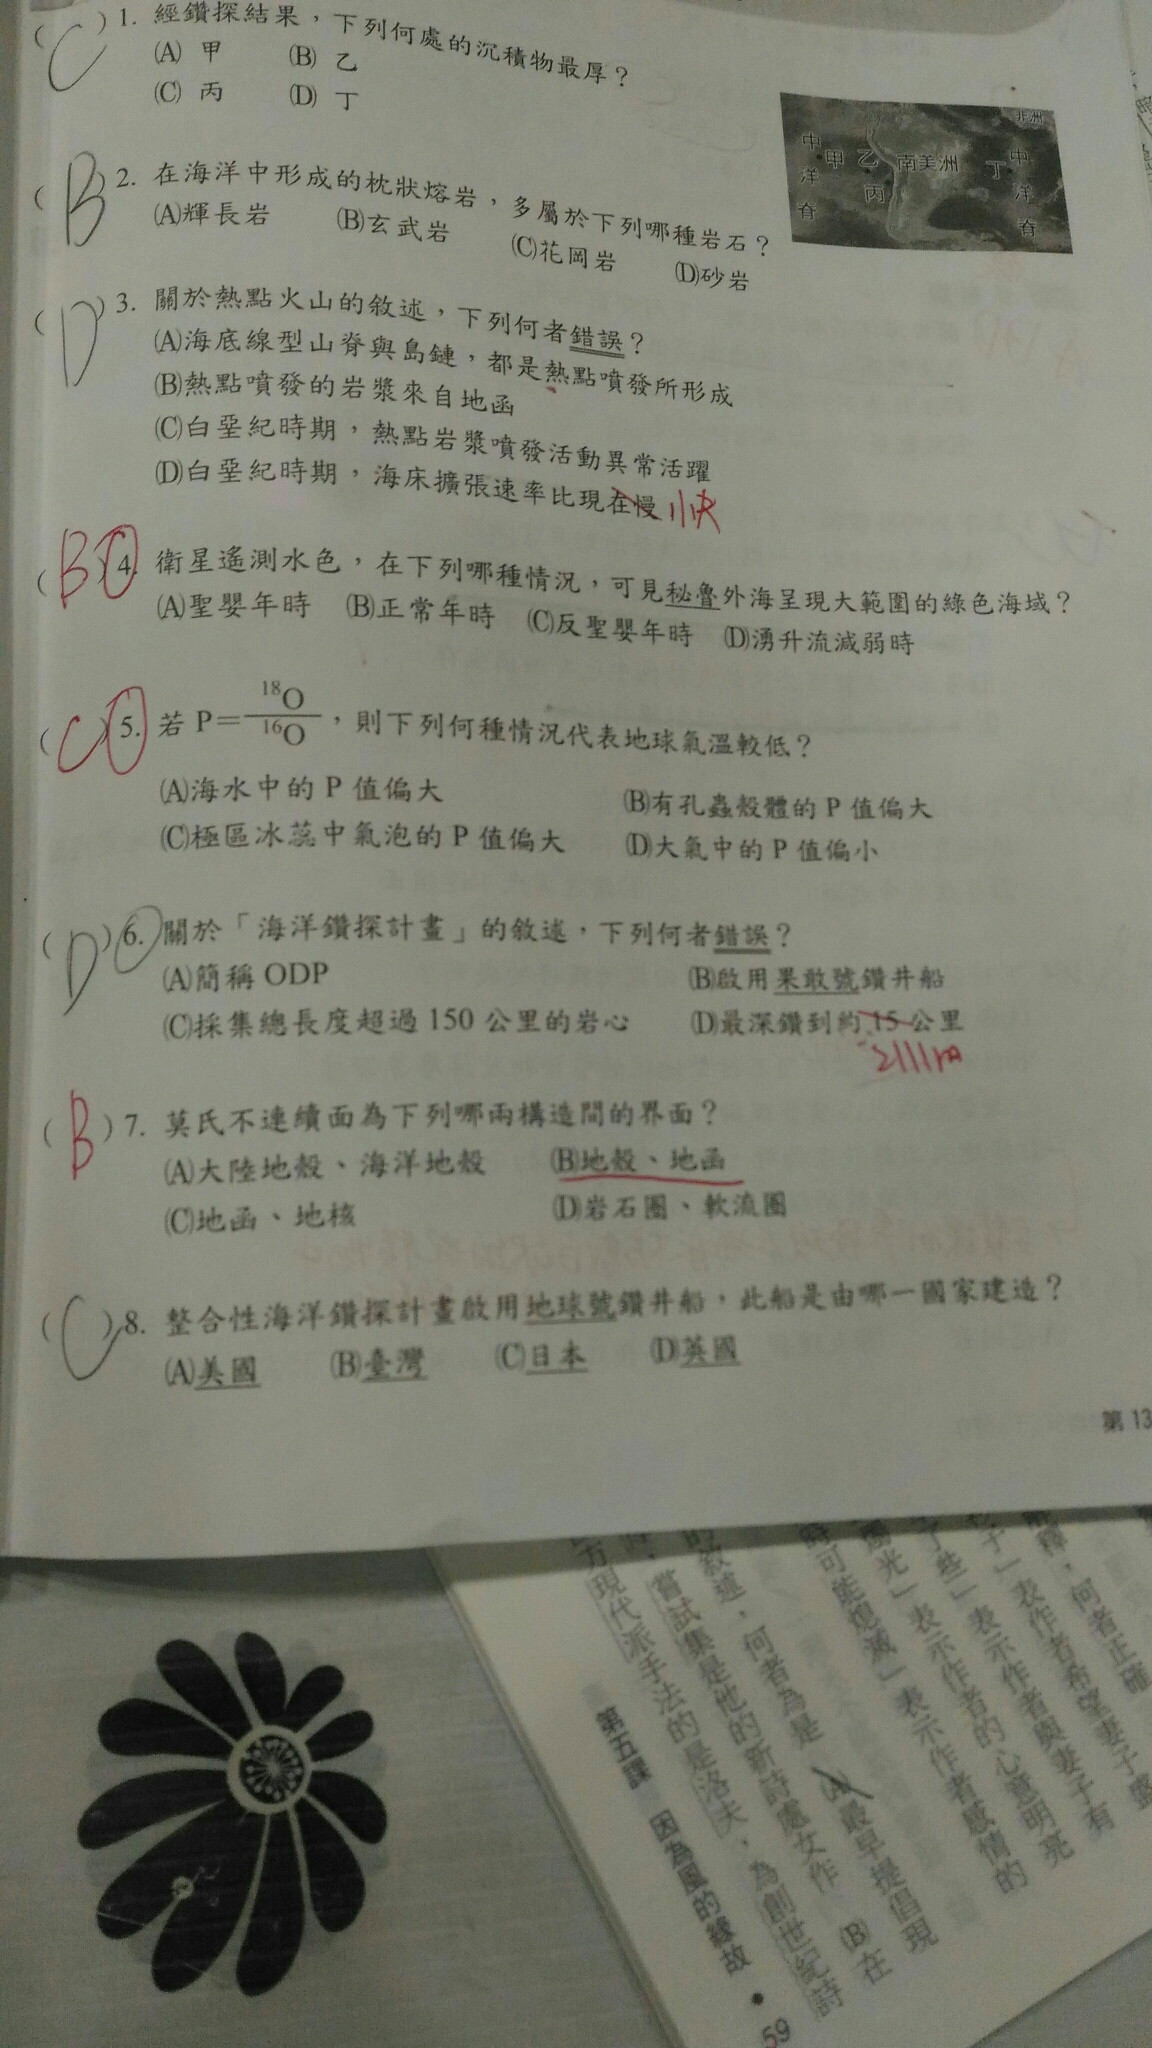 (C) 1. 經鑽探結果，下列何處的沉積物最厚？
(A) 甲 (B) 乙
(C) 丙 (D) 丁
非洲
中洋脊
甲
乙
丙
南美洲
丁
中洋脊
(B) 2. 在海洋中形成的枕狀熔岩，多屬於下列哪種岩石？
(A)輝長岩 (B)玄武岩 (C)花岡岩 (D)砂岩
(D) 3. 關於熱點火山的敘述，下列何者錯誤？
(A)海底線型山脊與島鏈，都是熱點噴發所形成
(B)熱點噴發的岩漿來自地函
(C)白堊紀時期，熱點岩漿噴發活動異常活躍
(D)白堊紀時期，海床擴張速率比現在慢 快
(BC) 4. 衛星遙測水色，在下列哪種情況，可見秘魯外海呈現大範圍的綠色海域？
(A)聖嬰年時 (B)正常年時 (C)反聖嬰年時 (D)湧升流減弱時
(C) 5. 若 P=18O/16O，則下列何種情況代表地球氣溫較低？
(A)海水中的 P 值偏大 (B)有孔蟲殼體的 P 值偏大
(C)極區冰蕊中氣泡的 P 值偏大 (D)大氣中的 P 值偏小
(D) 6. 關於「海洋鑽探計畫」的敘述，下列何者錯誤？
(A)簡稱 ODP (B)啟用果敢號鑽井船
(C)採集總長度超過 150 公里的岩心 (D)最深鑽到約 15 公里
2111m
(B) 7. 莫氏不連續面為下列哪兩構造間的界面？
(A)大陸地殼、海洋地殼 (B)地殼、地函
(C)地函、地核 (D)岩石圈、軟流圈
(C) 8. 整合性海洋鑽探計畫啟用地球號鑽井船，此船是由哪一國家建造？
(A)美國 (B)臺灣 (C)日本 (D)英國
第 13
解釋，何者正確
子」表作者希望妻子盛
了些」表示作者與妻子有
燭光」表示作者的心意明亮
時可能熄滅」表示作者感情的
的敘述，何者為是 (A)最早提倡現
嘗試集是他的新詩處女作 (B)在
方現代派手法的是洛夫，為創世紀詩
第五課 因為風的緣故 • 59